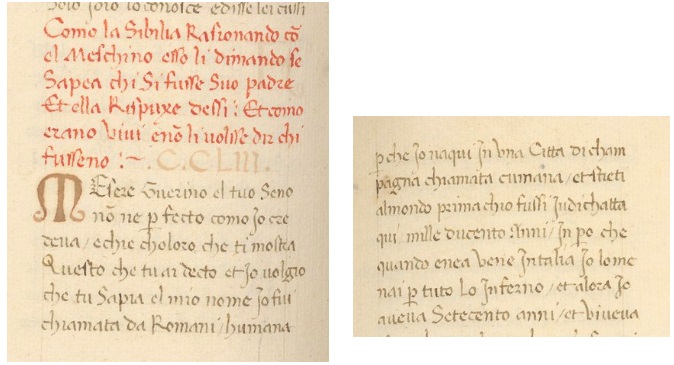 Solo loro lo conosce edisse lei cussi
Como la Sibilia Rasionando cõ
el Meschino esso li dimando se
Sapea chi Si fusse Suo padre
Et ella Rispuxe dessi: Et como
erano vivi enõ li volsse dir chi
fusseno :~ .C.CLIII.
MEsere Guerino el tuo Seno
nõ ne ꝑfecto como Jo cre
deva / echie choloro che ti mostra
Questo che tu ai decto et Jo volglio
che tu Sapia el mio nome Jo fui
chiamata da Romani / humana
ꝑche Jo naqui In vna Citta di cham
pagna chiamata cumana / et stieti
almondo prima chio fussi Iudichatta
qui / mille ducento Anni / In ꝑo che
quando enea vene In talia Jo lo me
nai ꝑ tuto Lo Inferno / et alora Jo
aveva Setecento anni / et viveva